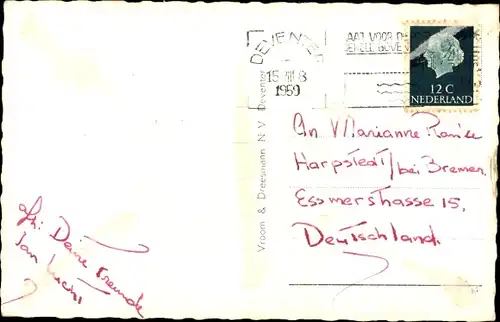 DEVENTER
15 VIII 8
1959
12 C
NEDERLAND
Vroom & Dreesmann N.V. Deventer
An Marianne
Harpstedt/bei Bremen.
Essmerstrasse 15,
Deutschland.
Deine Freunde
Jan